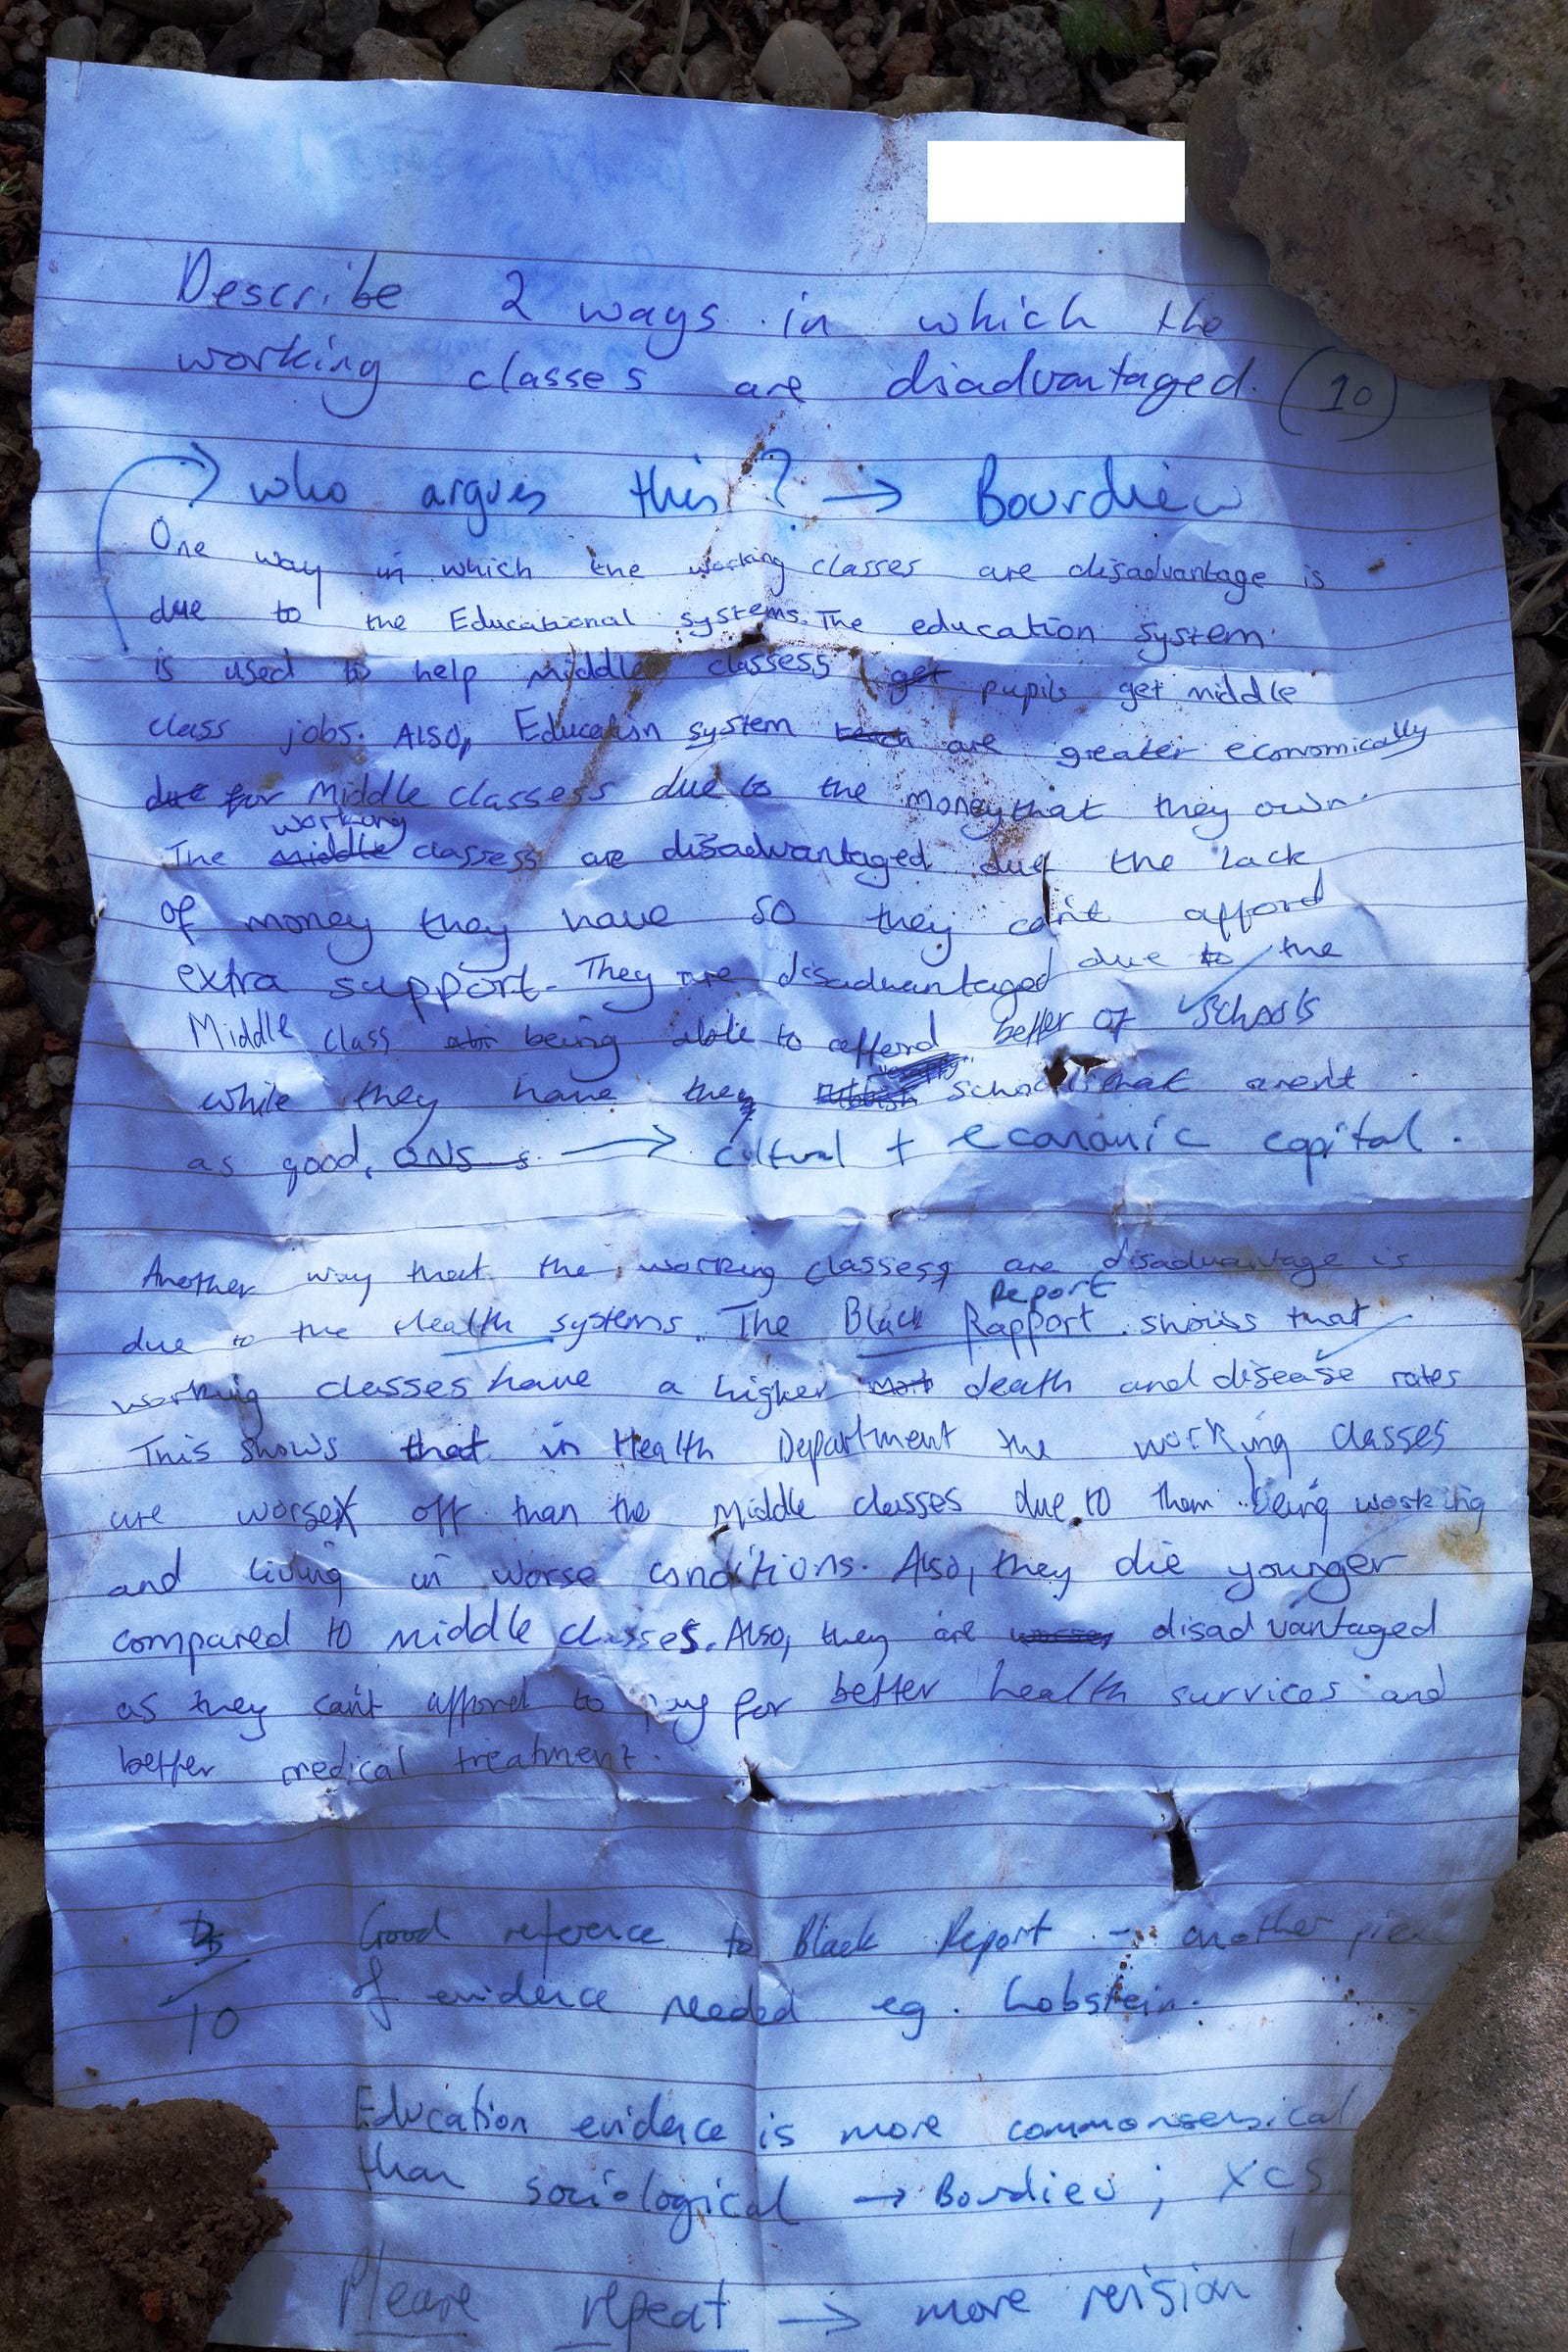 Describe 2 ways in which the
working classes are disadvantaged. (10)
who argues this? → Bourdieu
One way in which the working classes are disadvantage is
due to the Educational systems. The education system
is used to help middle classess get pupils get middle
class jobs. Also, Education system teach are greater economically
due for Middle classess due to the money that they own.
The middle working classess are disadvantaged due the lack
of money they have so they can't afford
extra support. They are disadvantaged due to the
Middle class being able to afferd better of schools
while they have they rubbish crappy schools that arent
as good, ones → cultural + economic capital.
Another way that the working classess are disadvantage is
due to the Health systems. The Black Rapport Report shows that
working classes have a higher mort death and disease rates
This shows that in Health Department the working classes
are worser off than the Middle classes due to them being working
and living in worse conditions. Also, they die younger
compared to middle classes. Also, they are worser disadvantaged
as they can't afford to pay for better health survices and
better medical treatment.
/10 Good reference to Black Report - another piece
of evidence needed eg. Lobstein.
Education evidence is more commonsensical
than sociological → Bourdieu;
Please repeat → more revision